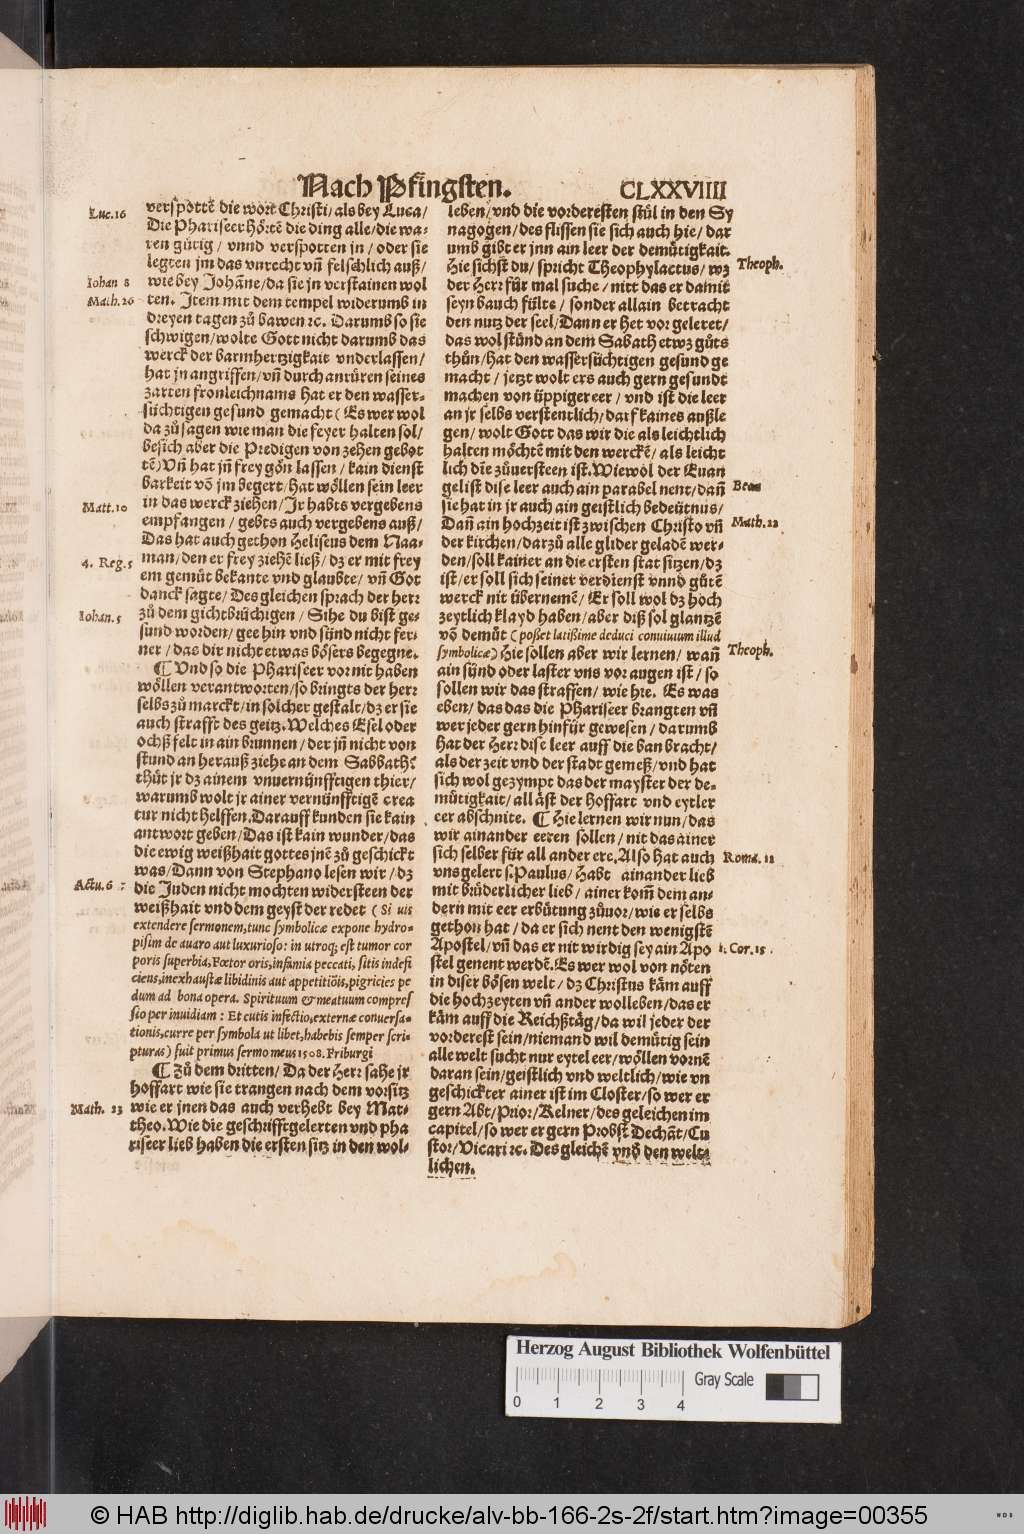 Nach Pfingsten. CLXXVIIII
Luc.16
verspottẽ die wort Christi/als bey Luca/
Die Phariseer hörtẽ die ding alle/die wa-
ren gütig/ vnnd verspotten jn/oder sie
legten jm das vnrecht vñ felschlich auß/
Iohan 8
wie bey Johãne/da sie jn verstainen wol
Math.26
ten. Item mit dem tempel widerumb in
dreyen tagen zů bawen ꝛc. Darumb so sie
schwigen/wolte Gott nicht darumb das
werck der barmhertzigkait vnderlassen/
hat jn angriffen/vñ durch anrüren seines
zarten fronleichnams hat er den wasser-
süchtigen gesund gemacht (Es wer wol
da zů sagen wie man die feyer halten sol/
besich aber die Predigen von zehen gebot
tẽ) Vñ hat jñ frey gon lassen/kain dienst
barkeit võ jm begert/hat wöllen sein leer
Matt.10
in das werck ziehen/Ir habts vergebens
empfangen/gebts auch vergebens auß/
Das hat auch gethon Heliseus dem Naa-
4. Reg.5
man/den er frey ziehẽ ließ/dz er mit frey
em gemüt bekante vnd glaubte/vñ Got
danck sagte/Des gleichen sprach der herr
Iohan.5
zů dem gichtbrüchigen/Sihe du bist ge-
sund worden/gee hin vnd sünd nicht fer-
ner/das dir nicht etwas bösers begegne.
¶ Vnd so die Phariseer vor nit haben
wöllen verantworten/so bringts der herr
selbs zů marckt/in solcher gestalt/dz er sie
auch strafft des geitz. Welches Esel oder
ochß felt in ain brunnen/der jñ nicht von
stund an herauß ziehe an dem Sabbath?
thůt jr dz ainem vnuernünfftigen thier/
warumb wolt jr ainer vernünfftigẽ crea
tur nicht helffen. Darauff kunden sie kain
antwort geben/Das ist kain wunder/das
die ewig weißhait gottes jnẽ zů geschickt
was/Dann von Stephano lesen wir/dz
Actu.6
die Juden nicht mochten widersteen der
weißhait vnd dem geyst der redet (Si uis
extendere sermonem, tunc symbolicæ expone hydro-
pisim de auaro aut luxurioso: in utroq; est tumor cor
poris superbia, Fœtor oris, infamia peccati, sitis indefi
ciens, inexhaustæ libidinis aut appetitiõis, pigricies pe
dum ad bona opera. Spirituum & meatuum compres
sio per inuidiam: Et cutis infectio, externæ conuersa-
tionis, curre per symbola ut libet, habebis semper scri-
pturas) fuit primus sermo meus 1508. Friburgi
¶ Zů dem dritten/Da der Herr sahe jr
hoffart wie sie trangen nach dem vorsitz
Math. 23
wie er jnen das auch verhebt bey Mat-
theo. Wie die geschrifftgelerten vnd pha
riseer lieb haben die ersten sitz in den wol-
leben/vnd die vorderesten stůl in den Sy
nagogen/des flissen sie sich auch hie/dar
umb gibt er jnn ain leer der demütigkait.
Theoph.
Hie sichst du/spricht Theophylactus/wz
der Herr für mal suche/nitt das er damit
seyn bauch fülte/sonder allain betracht
den nutz der seel/Dann er het vor geleret/
das wol stünd an dem Sabath etwz gůts
thůn/hat den wassersüchtigen gesund ge
macht/jetzt wolt ers auch gern gesundt
machen von üppiger eer/vnd ist die leer
an jr selbs verstentlich/darf kaines außle
gen/wolt Gott das wir die als leichtlich
halten möchtẽ mit den werckẽ/als leicht
lich die zůuersteen ist. Wiewol der Euan
Beda
gelist dise leer auch ain parabel nent/dañ
sie hat in jr auch ain geistlich bedeütnus/
Math.22
Dañ ain hochzeit ist zwischen Christo vñ
der kirchen/darzů alle glider geladẽ wer-
den/soll kainer an die ersten stat sitzen/dz
ist/er soll sich seiner verdienst vnnd gůtẽ
werck nit übernemẽ/Er soll wol dz hoch
zeytlich klayd haben/aber diß sol glantzẽ
võ demůt (posset latissime deduci conuiuium illud
Theoph.
symbolicæ) Hie sollen aber wir lernen/wañ
ain sünd oder laster vns vor augen ist/so
sollen wir das straffen/wie hie. Es was
eben/das das die Phariseer brangten vñ
wer jeder gern hinfür gewesen/darumb
hat der Herr dise leer auff die ban bracht/
als der zeit vnd der stadt gemeß/vnd hat
sich wol gezympt das der mayster der de-
mütigkait/all äst der Hoffart vnd eytler
eer abschnite. ¶ Hie lernen wir nun/das
wir ainander eeren sollen/nit das ainer
Roma. 12
sich selber für all ander ere. Also hat auch
vns gelert s. Paulus/Habt ainander lieb
mit brůderlicher lieb/ainer kom̃ dem an-
dern mit eer erbütung zůuor/wie er selbs
gethon hat/da er sich nent den wenigstẽ
1. Cor.15
Apostel/vñ das er nit wirdig sey ain Apo
stel genent werdẽ. Es wer wol von nöten
in diser bösen welt/dz Christus käm auff
die hochzeyten vñ ander wolleben/das er
käm auff die Reichßtäg/da wil jeder der
vorderest sein/niemand wil demütig sein
alle welt sucht nur eytel eer/wöllen vornẽ
daran sein/geistlich vnd weltlich/wie vn
geschickter ainer ist im Closter/so wer er
gern Abt/Prior/Kelner/des geleichen im
capitel/so wer er gern Probst Dechãt/Cu
stor/Vicari ꝛc. Des gleichẽ vnd den welt-
lichen.
Herzog August Bibliothek Wolfenbüttel
Gray Scale
0 1 2 3 4
© HAB http://diglib.hab.de/drucke/alv-bb-166-2s-2f/start.htm?image=00355